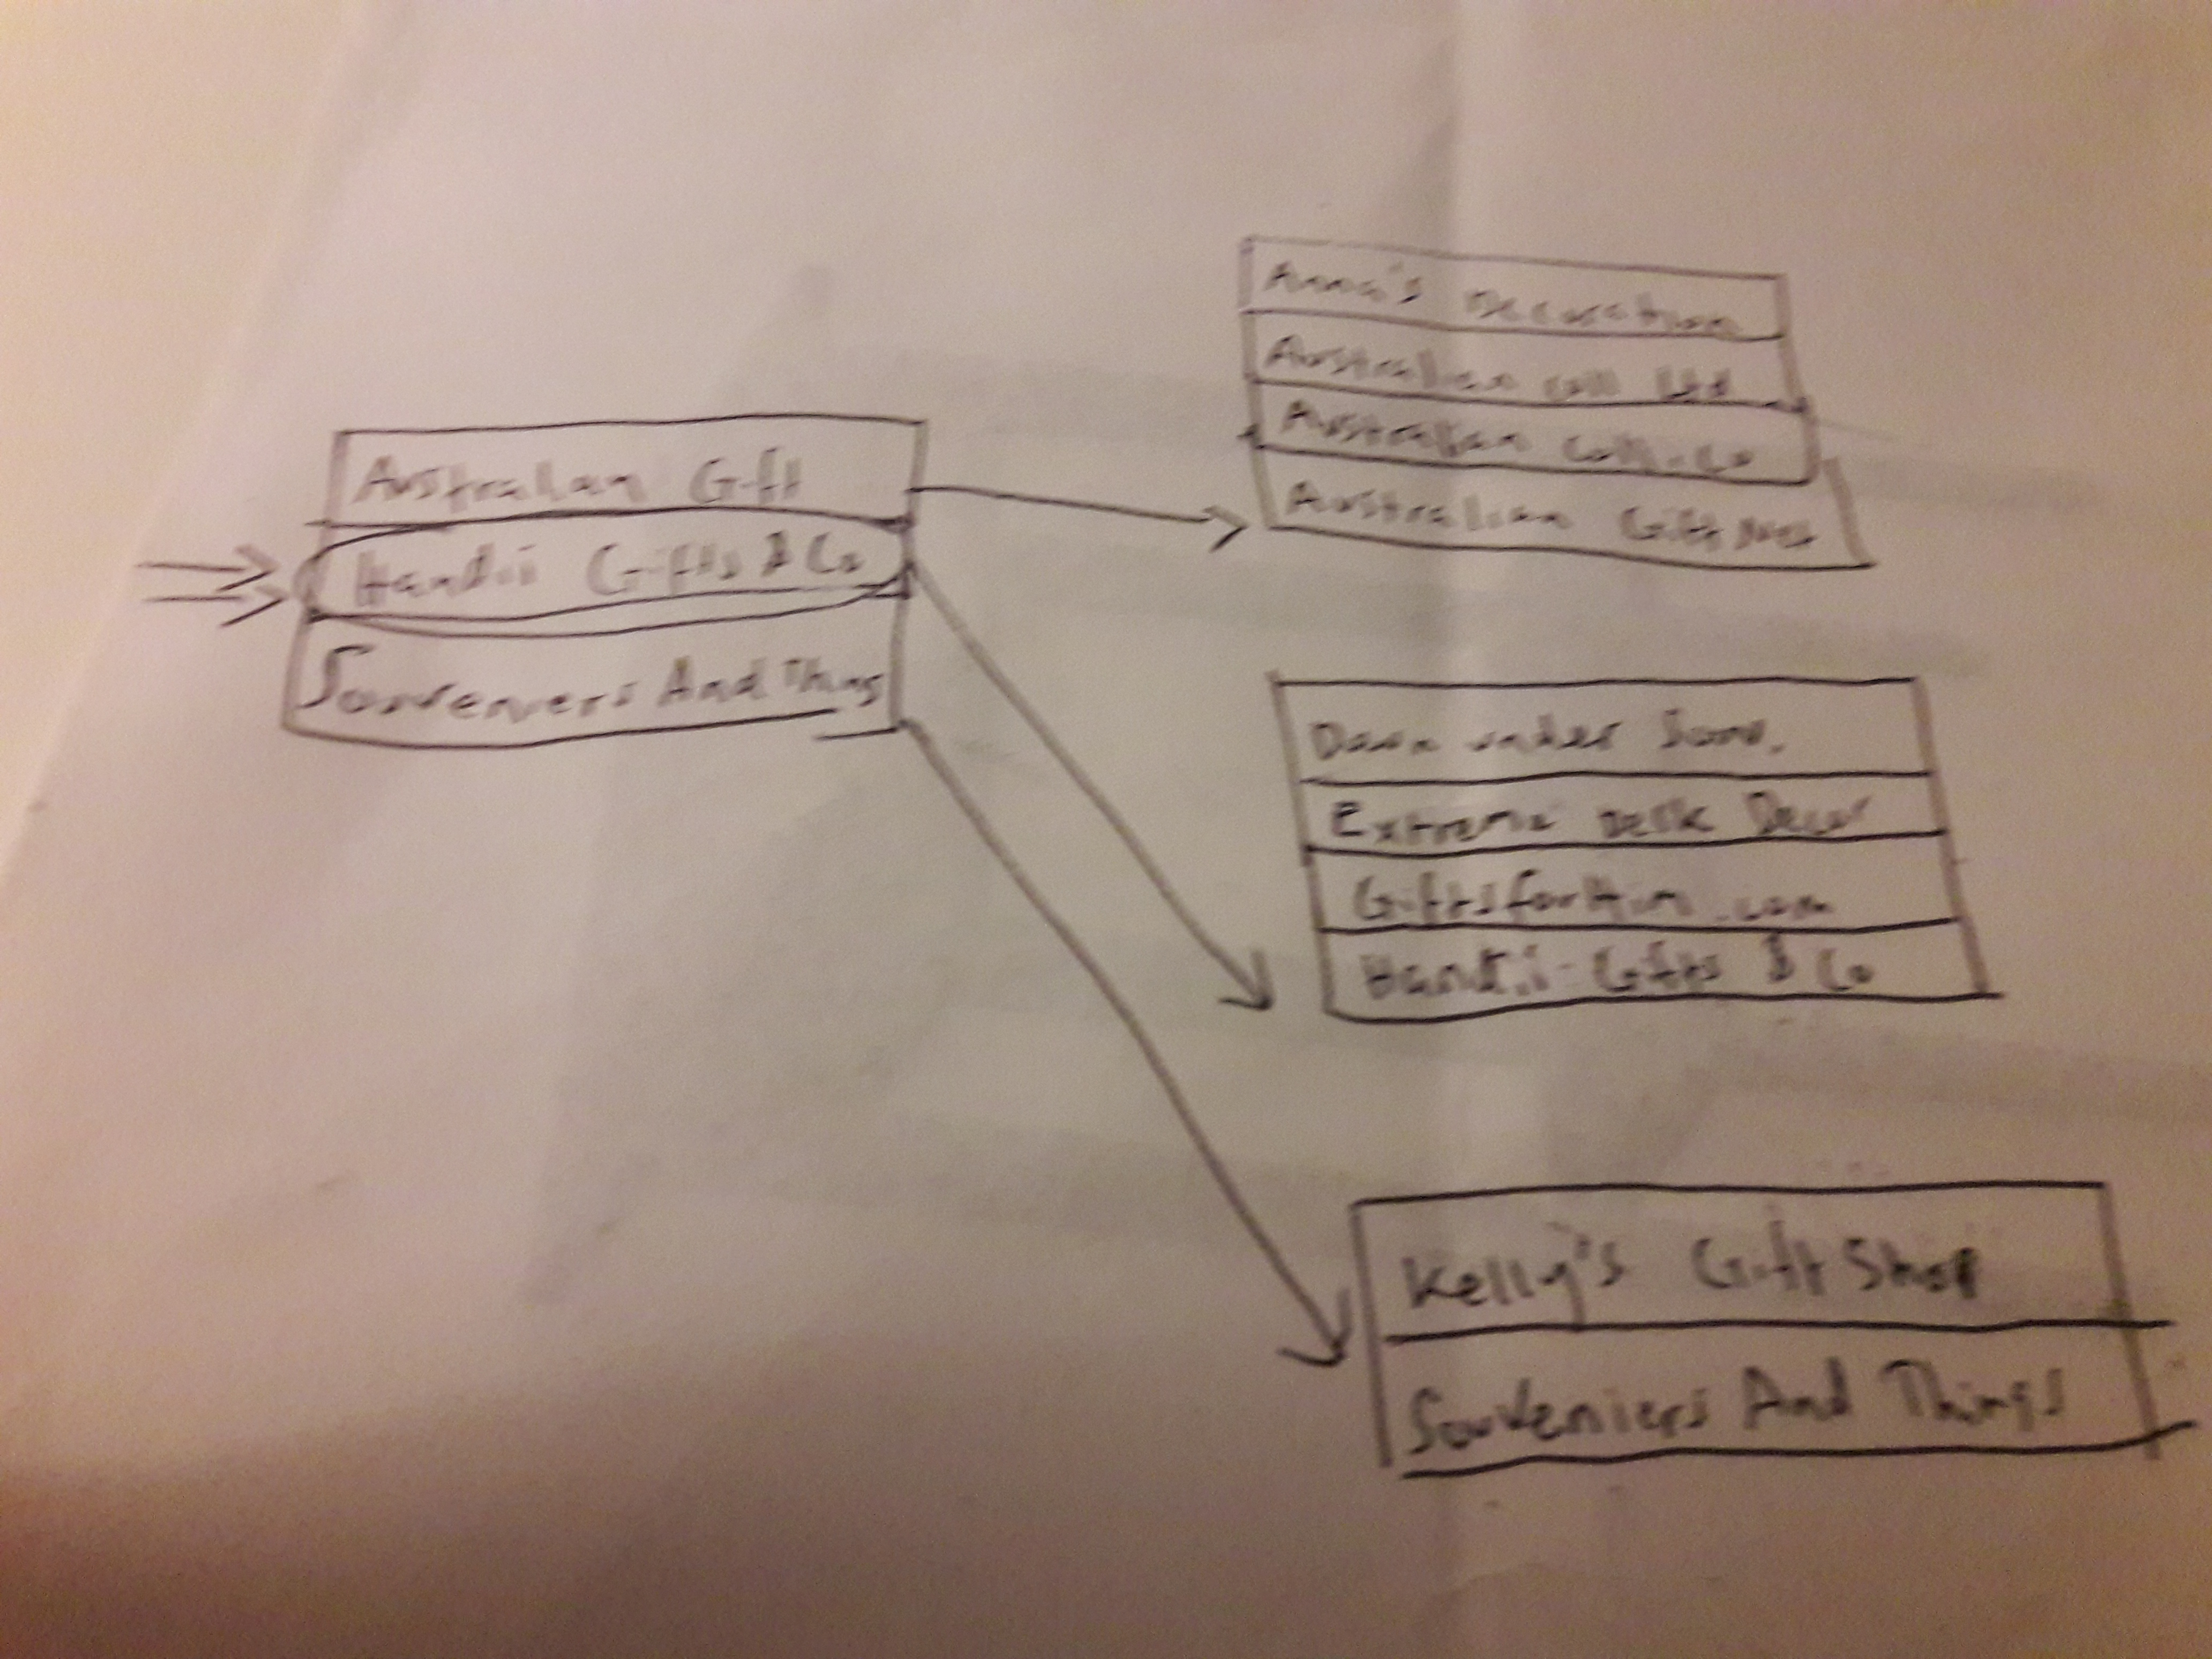 Australian Gift
Handii Gifts & Co
Souveniers And Things
Anna's Decoration
Australian Coll Ltd
Australian Coll. Co
Australian Gift Net
Down under Souv.
Extreme Desk Decor
GiftsforHim.com
Handii Gifts & Co
Kelly's Gift Shop
Souveniers And Things